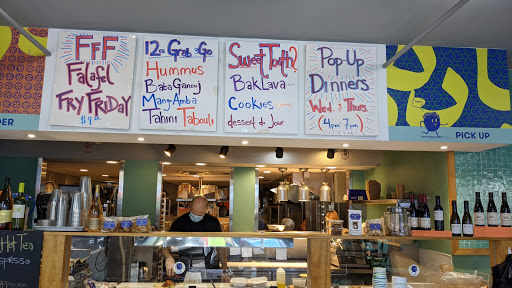 FFF
Falafel
Fry Friday
12oz Grab & Go
Hummus
Baba Ganouj
Mang Amba
Tahini Tabouli
Sweet Tooth?
Baklava
Cookies
dessert du jour
Pop-Up
Dinners
Wed. & Thurs
(4pm-7pm)
DER
PICK UP
Hot Tea
espresso